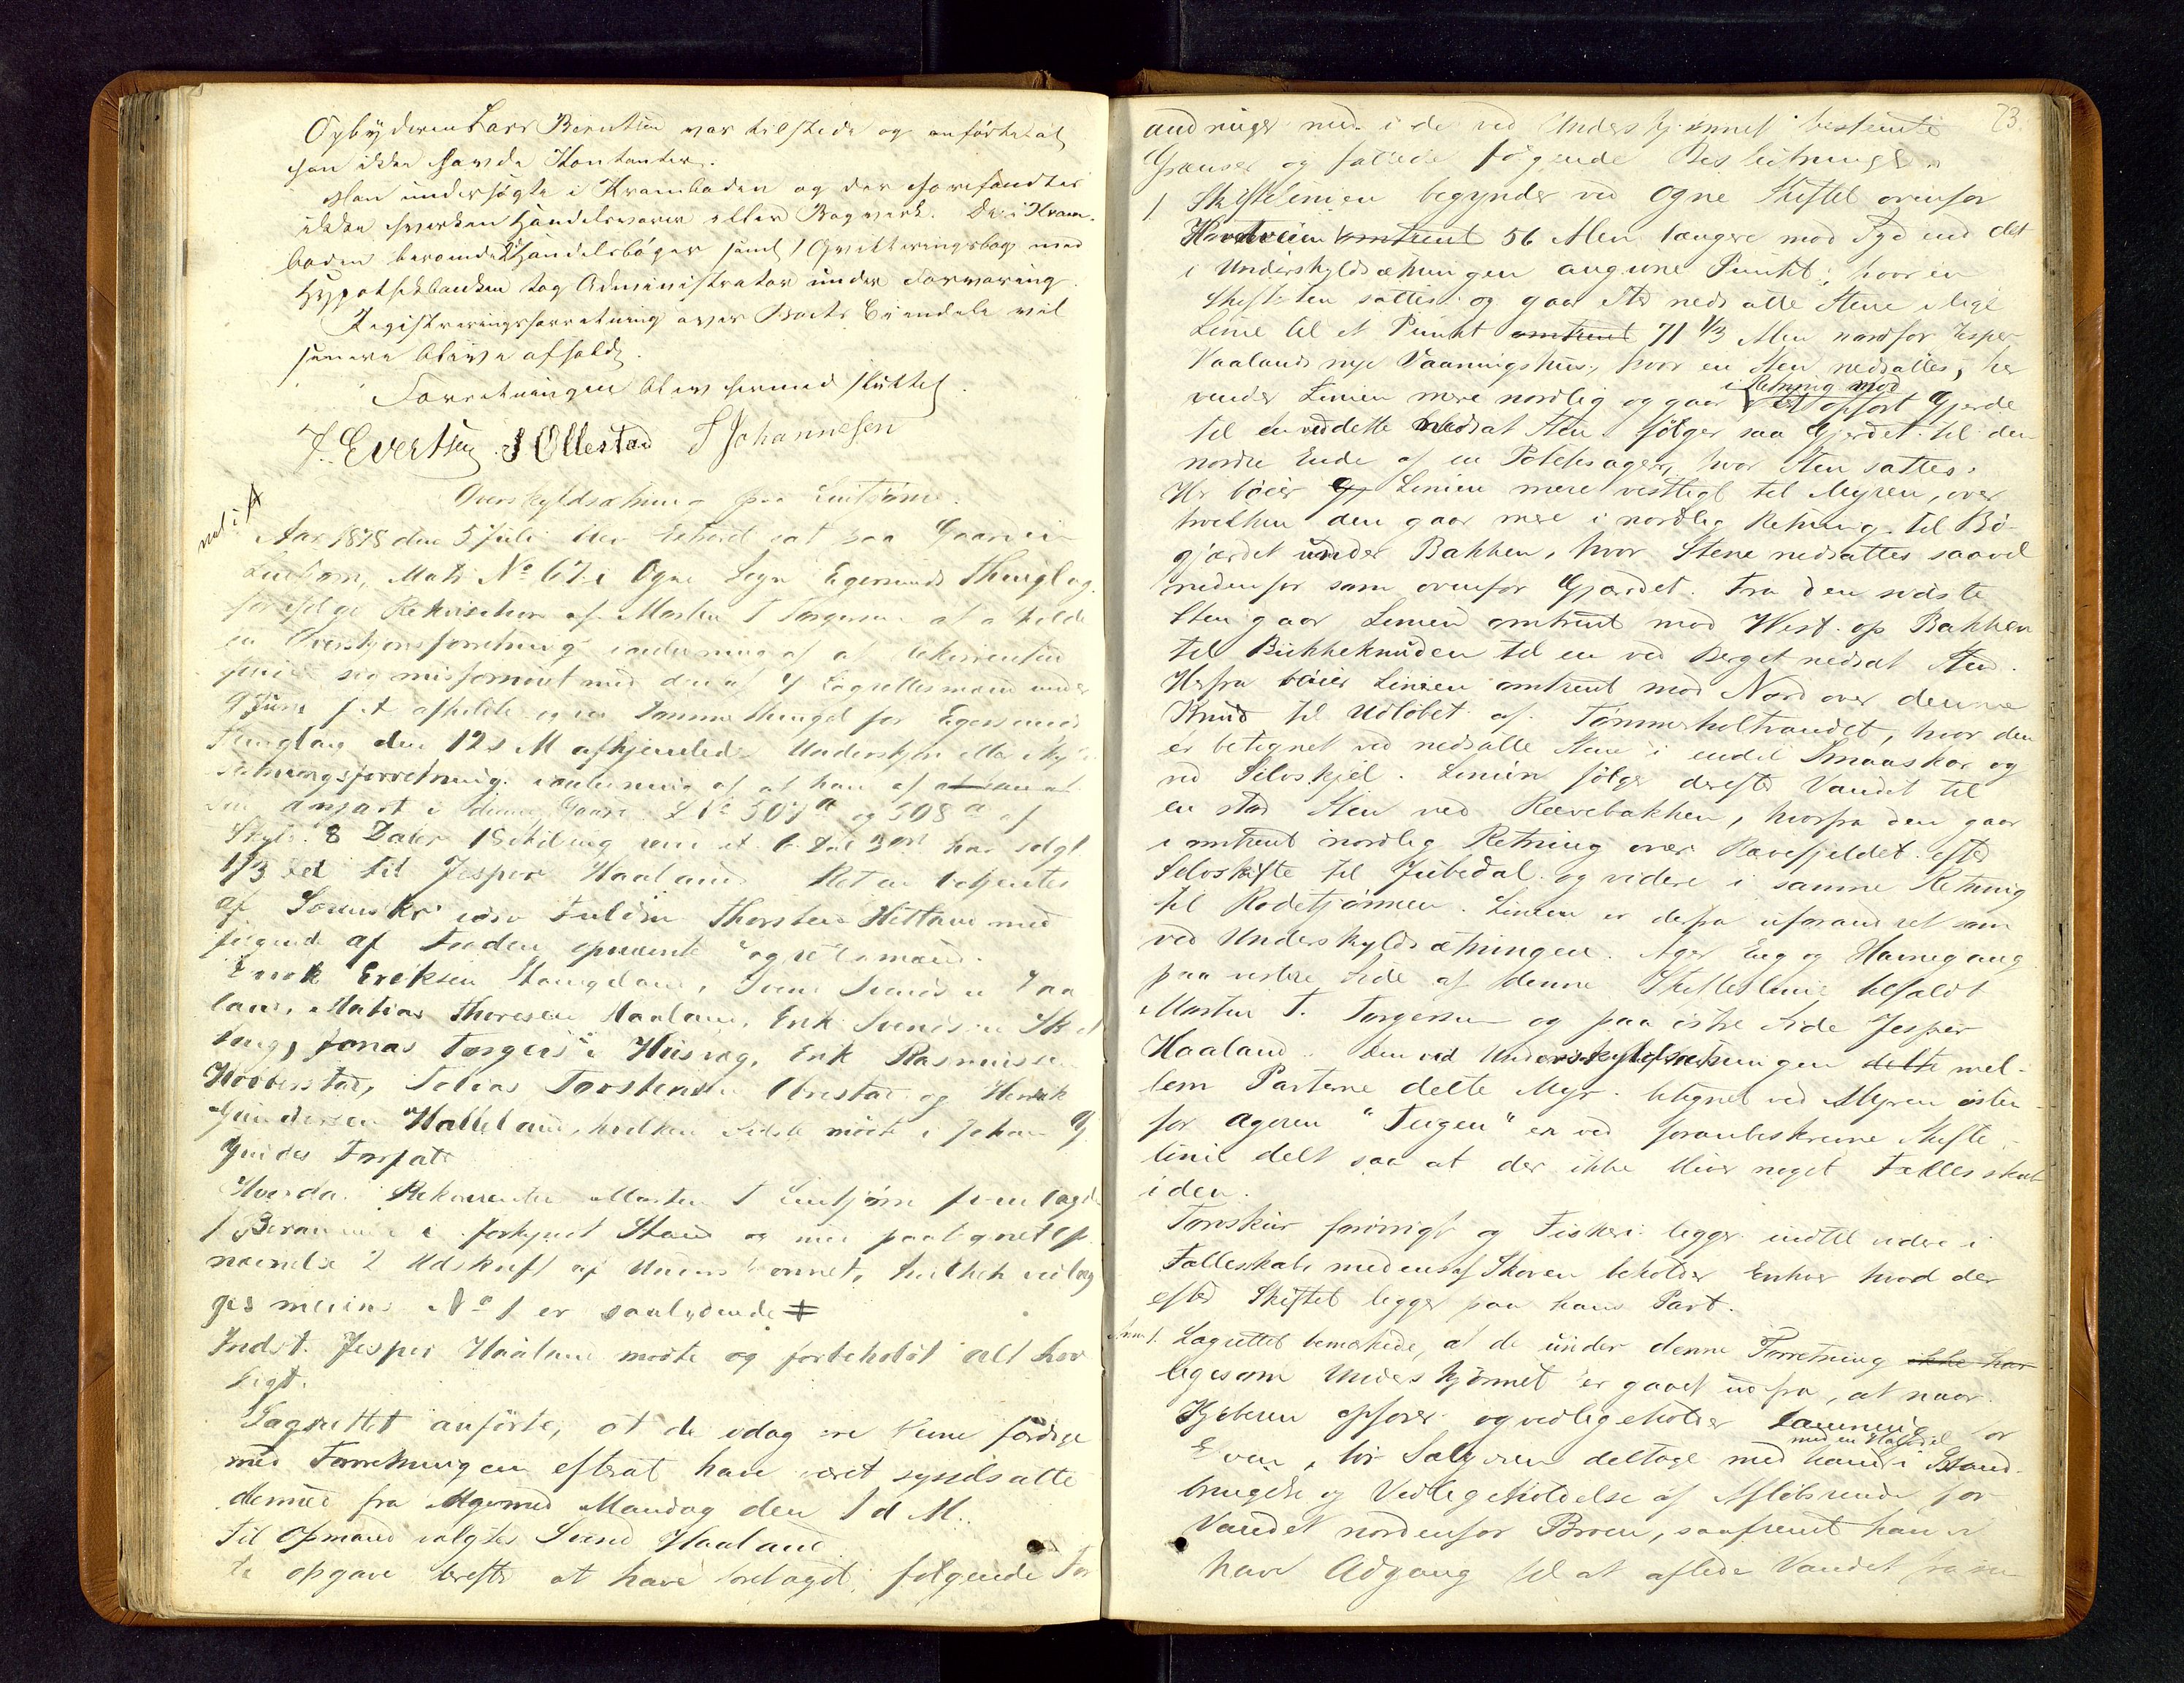 Opbyderen Lars Berentsen var tilstede og anførte at
han ikke havde Kontanter.
Man undersøgte i Kramboden og der forefandtes
ikke hverken Handelsvarer eller Bagværk. De i Kram-
boden beroende 2 Handelsbøger samt 1 Qvitteringsbog med
Hypothekbanken tog Administrator under Forvaring.
Registreringsforretning over Boets Eiendele vil
senere blive afholdt.
Forretningen blev hermed sluttet.
J. Evertsen S Ollestad J Johannesen
Overskyldsætning paa Lintjørn.
Aar 1878 den 5 Juli blev Extraret sat paa Gaarden
Lintjørn, Matr No 67 i Ogne Sogn Egersunds Thinglag
ifølge Rekvisition af Morten T Torgersen at afholde
en Overskjønsforretning i anledning af at Rekvirenten
fandt sig misfornøiet med den af 4 Lagrettesmænd under
9 Juni f A afholdte og ved Sommerthinget for Egersunds
Thinglag den 12 s M afhjemlede Underskjøn eller Skyld
sætningsforretning i anledning af at han af
sin anpart i denne Gaard L No 507a og 508a af
Skyld 8 Daler 1 Skilling har solgt
1/3 Del til Jesper Haaland Retten betjentes
af Sorenskr ved Fuldm Thorsten Hetland med
følgende af Fogden opnævnte Lagrettesmænd.
Enok Eriksen Stangeland, Svend Svendsen Haa
land, Mathias Thoresen Haaland, Erik Svendsen
Jonas Torgersen Husvæg, Erik Rasmussen
Hooverstad, Tobias Torstensen Obrestad og Henrik
Gundersen Halleland, hvilken sidste mødte i Johan G
Forfald
Hvorda Rekvirenten Morten T Lintjørn fremlagde
1 Berammelse i forkyndt Stand og med paategnet Op
nævnelse 2 Udskrift af Underskjønnet, hvilket vedlæg
ges medens No 1 er saalydende ‡
Indst. Jesper Haaland mødte og forbeholdt alt lov
ligt.
Lagrettet anførte, at de idag ere kune færdige
med Forretningen efterat have været sysselsatte
dermed fra Morgenen Mandag den 1 d M.
Til Opmand valgtes Svend Haaland
De opgave derefter at have foretaget følgende For
73.
andringer med i de ved Underskjønnet bestemte
Grænser og fattede følgende Beslutninger
1 Skiftelinien begynder ved Ogne Skiftet ovenfor
omtrent 56 Alen længere mod Syd end det
i Underskyldsætningen angivne Punkt, hvor en
Skiftesten sattes og gaar efter nedsatte Stene i lige
Linie til et Punkt omtrent 71 1/3 Alen nordfor Jesper
Haalands nye Vaaningshus, hvor en Sten nedsattes, her
vender Linien mere nordlig og gaar i Retning mod et opført Gjerde
til en ved dette nedsat Sten følger saa Gjerdet til den
nordre Ende af en Potetesager, hvor Sten sattes.
Her bøier Linien mere vestligt til Myren, over
hvilken den gaar mere i nordlig Retning til Bø-
gjærdet under Bakken, hvor Stene nedsattes saavel
nedenfor som ovenfor Gjærdet. Fra den sidste
Sten gaar Linien omtrent mod Vest op Bakken
til Bukkeknuden til en ved Berget nedsat Sten.
Herfra bøier Linien omtrent mod Nord over denne
Knud til Udløbet af Tømmerholtvandet, hvor den
er betegnet ved nedsatte Stene i endel Smaaskar og
ved Selvskjel. Linien følger derefter Vandet til
en stor Sten ved Rævebakken, hvorfra den gaar
i omtrent nordlig Retning over Rævefjeldet efter
Selvskifte til Jubedal og videre i samme Retning
til Rødetjønnen. Linien er derfra uforandret som
ved Underskyldsætningen. Ager Eng og Havnegang
paa vestre Side af denne Skiftelinie tilfaldt
Morten T. Torgersen og paa østre Side Jesper
Haaland. Den ved Underskyldsætningen delte mel-
lem Parterne delte Myr betegnet ved Myren østen-
for ageren "Teigen" er ved foranbeskrevne Skifte
linie delt saa at der ikke bliver noget Fællesskab
i den.
Torvskur forøvrigt og Fiskeri ligger indtil videre i
Fælleskab medens af Skoven beholder Enhver hvad der
efter Skiftet ligger paa hans Part.
Anm 1. Lagrettet bemærkede, at de under denne Forretning ikke har
ligesom Underskjønnet er gaaet ud fra, at naar
Kjøberen opfører og vedligeholder for
Elven, bør Sælgeren deltage med hans med en Halvdel i Istand-
bringelse og Vedligeholdelse af Afløbsrende for
Vandet nordenfor Broen, saafremt han vil
have Adgang til at aflede Vandet fra sin